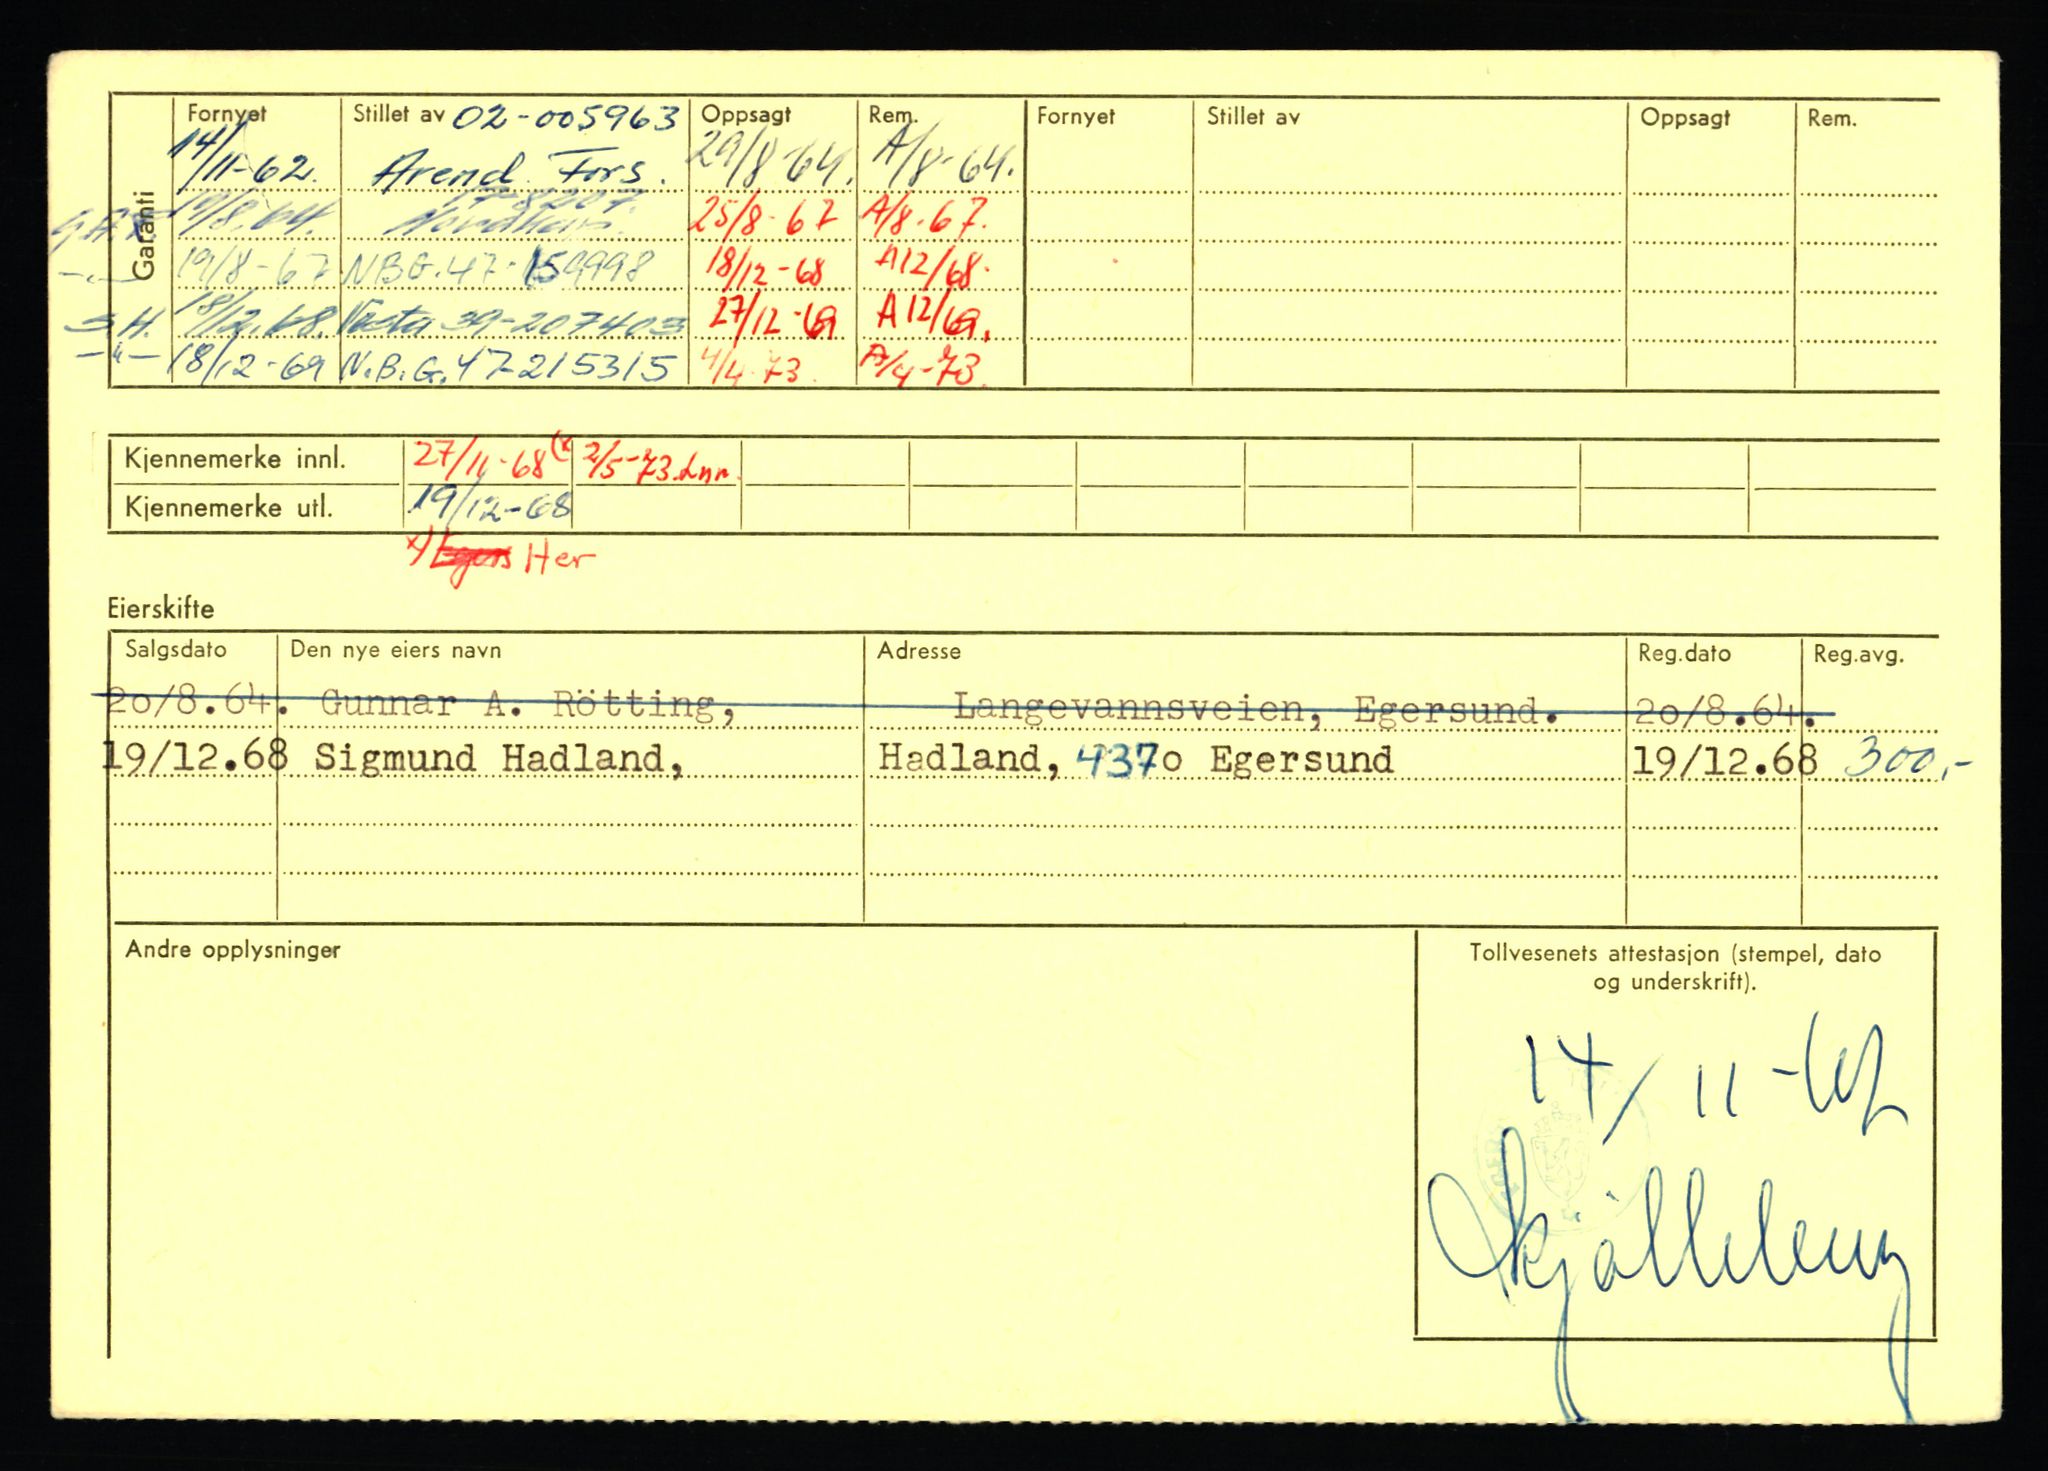 Garanti
Fornyet Stillet av 02-005963 Oppsagt Rem. Fornyet Stillet av Oppsagt Rem.
14/11-62. Arend. Fors. 29/8-64. A/8-64.
19/8.64. 25/8-67 A/8-67.
19/8-67 N.B.G. 47-159998 18/12-68 A12/68.
S.H. 18/12.68. Vesta 39-207403 27/12-69 A12/69.
-"- 18/12-69 N.B.G. 47-215315 4/4-73. A/4-73.
Kjennemerke innl. 27/11-68 (x 2/5-73. Lnn.
Kjennemerke utl. 19/12-68
x) Egers Her
Eierskifte
Salgsdato Den nye eiers navn Adresse Reg.dato Reg.avg.
20/8.64. Gunnar A. Rötting, Langevannsveien, Egersund. 20/8.64.
19/12.68 Sigmund Hadland, Hadland, 4370 Egersund 19/12.68 300,-
Andre opplysninger
Tollvesenets attestasjon (stempel, dato
og underskrift).
14/11-62